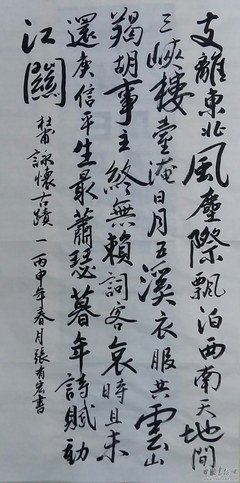 支離東北風塵際飄泊西南天地間
三峽樓臺淹日月五溪衣服共雲山
羯胡事主終無賴詞客哀時且未
還庾信平生最蕭瑟暮年詩賦動
江關
杜甫詠懷古蹟一丙申年春月張有書